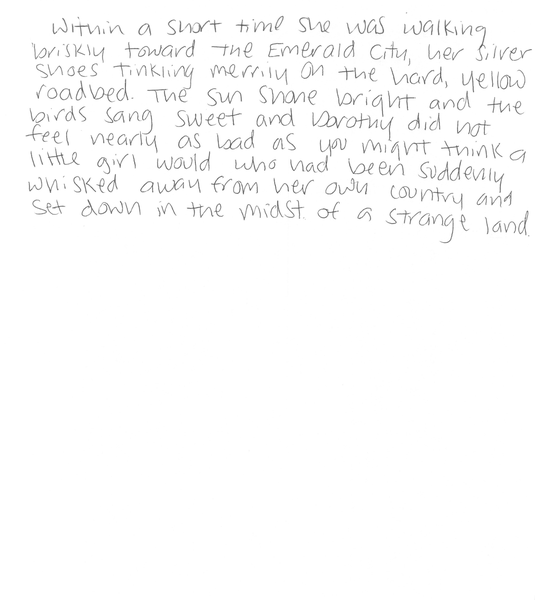 Within a short time she was walking
briskly toward the Emerald City, her Silver
Shoes tinkling merrily on the hard, yellow
roadbed. The sun shone bright and the
birds sang sweet and Dorothy did not
feel nearly as bad as you might think a
little girl would who had been suddenly
whisked away from her own country and
set down in the midst of a strange land.